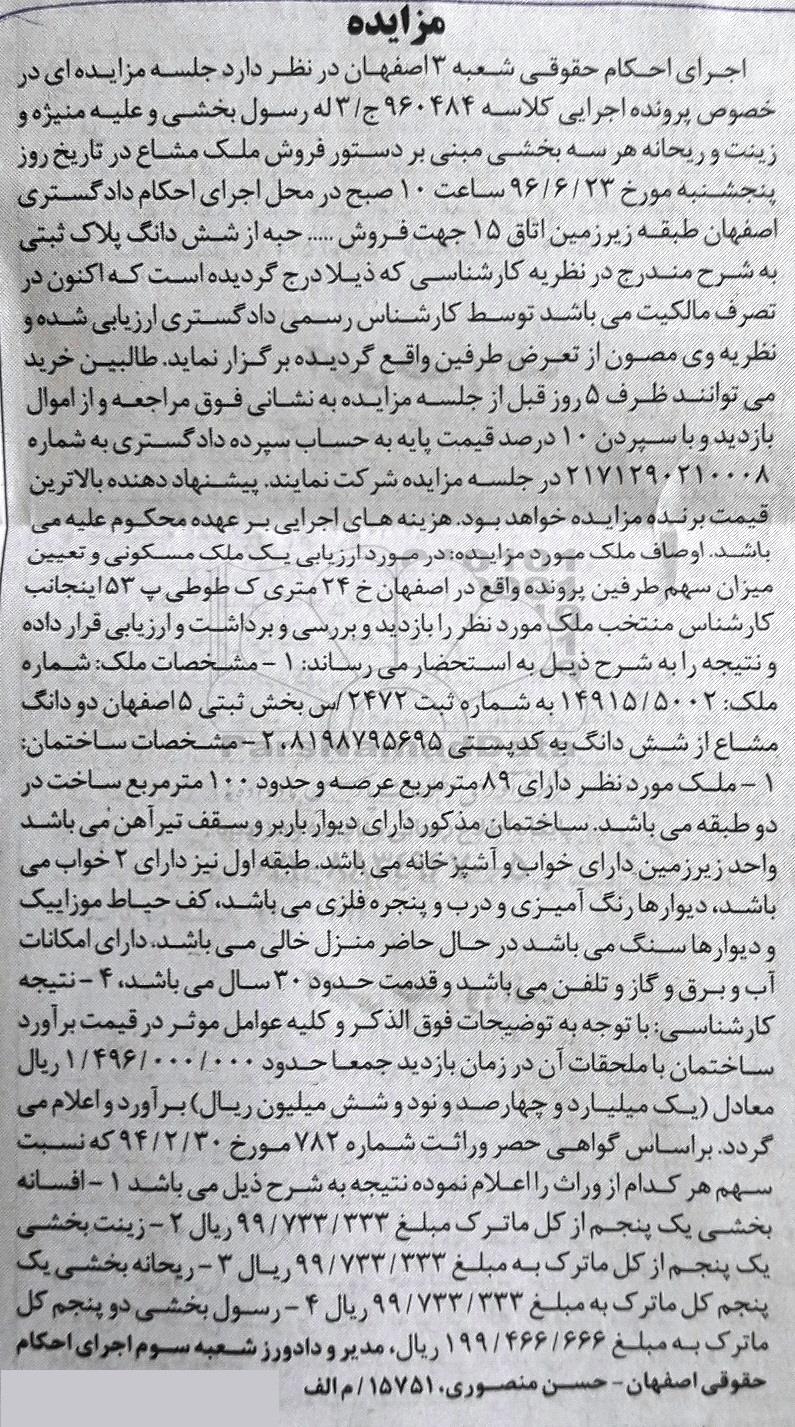 مزایده
اجرای احکام حقوقی شعبه ۳ اصفهان در نظر دارد جلسه مزایده ای در
خصوص پرونده اجرایی کلاسه ۹۶۰۴۸۴ج/۳ له رسول بخشی و علیه منیژه و
زینت و ریحانه هر سه بخشی مبنی بر دستور فروش ملک مشاع در تاریخ روز
پنجشنبه مورخ ۹۶/۶/۲۳ ساعت ۱۰ صبح در محل اجرای احکام دادگستری
اصفهان طبقه زیرزمین اتاق ۱۵ جهت فروش ..... حبه از شش دانگ پلاک ثبتی
به شرح مندرج در نظریه کارشناسی که ذیلا درج گردیده است که اکنون در
تصرف مالکیت می باشد توسط کارشناس رسمی دادگستری ارزیابی شده و
نظریه وی مصون از تعرض طرفین واقع گردیده برگزار نماید. طالبین خرید
می توانند ظرف ۵ روز قبل از جلسه مزایده به نشانی فوق مراجعه و از اموال
بازدید و با سپردن ۱۰ درصد قیمت پایه به حساب سپرده دادگستری به شماره
۲۱۷۱۲۹۰۲۱۰۰۰۸ در جلسه مزایده شرکت نمایند. پیشنهاد دهنده بالاترین
قیمت برنده مزایده خواهد بود. هزینه های اجرایی بر عهده محکوم علیه می
باشد. اوصاف ملک مورد مزایده: در مورد ارزیابی یک ملک مسکونی و تعیین
میزان سهم طرفین پرونده واقع در اصفهان خ ۲۴ متری ک طوطی پ ۵۳ اینجانب
کارشناس منتخب ملک مورد نظر را بازدید و بررسی و برداشت و ارزیابی قرار داده
و نتیجه را به شرح ذیل به استحضار می رساند: ۱ - مشخصات ملک: شماره
ملک: ۱۴۹۱۵/۵۰۰۲ به شماره ثبت ۲۴۷۲/س بخش ثبتی ۵ اصفهان دو دانگ
مشاع از شش دانگ به کدپستی ۸۱۹۸۷۹۵۶۹۵، ۲ - مشخصات ساختمان:
۱ - ملک مورد نظر دارای ۸۹ مترمربع عرصه و حدود ۱۰۰ مترمربع ساخت در
دو طبقه می باشد. ساختمان مذکور دارای دیوار باربر و سقف تیرآهن می باشد
واحد زیرزمین دارای خواب و آشپزخانه می باشد. طبقه اول نیز دارای ۲ خواب می
باشد، دیوارها رنگ آمیزی و درب و پنجره فلزی می باشد، کف حیاط موزاییک
و دیوارها سنگ می باشد در حال حاضر منزل خالی می باشد. دارای امکانات
آب و برق و گاز و تلفن می باشد و قدمت حدود ۳۰ سال می باشد، ۴ - نتیجه
کارشناسی: با توجه به توضیحات فوق الذکر و کلیه عوامل موثر در قیمت برآورد
ساختمان با ملحقات آن در زمان بازدید جمعا حدود ۱/۴۹۶/۰۰۰/۰۰۰ ریال
معادل (یک میلیارد و چهارصد و نود و شش میلیون ریال) برآورد و اعلام می
گردد. براساس گواهی حصر وراثت شماره ۷۸۲ مورخ ۹۴/۲/۳۰ که نسبت
سهم هر کدام از وراث را اعلام نموده نتیجه به شرح ذیل می باشد ۱ - افسانه
بخشی یک پنجم از کل ماترک مبلغ ۹۹/۷۳۳/۳۳۳ ریال ۲ - زینت بخشی
یک پنجم از کل ماترک به مبلغ ۹۹/۷۳۳/۳۳۳ ریال ۳ - ریحانه بخشی یک
پنجم کل ماترک به مبلغ ۹۹/۷۳۳/۳۳۳ ریال ۴ - رسول بخشی دو پنجم کل
ماترک به مبلغ ۱۹۹/۴۶۶/۶۶۶ ریال، مدیر و دادورز شعبه سوم اجرای احکام
حقوقی اصفهان - حسن منصوری، ۱۵۷۵۱/م الف